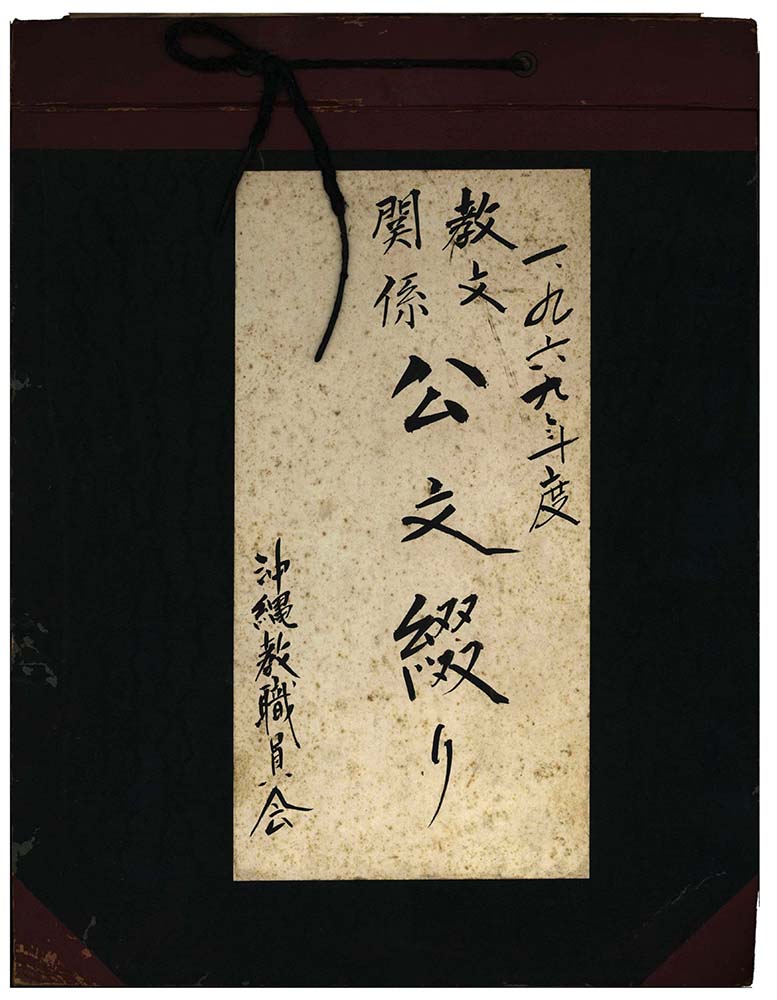 一九六九年度
教文
関係
公文綴り
沖縄教職員会